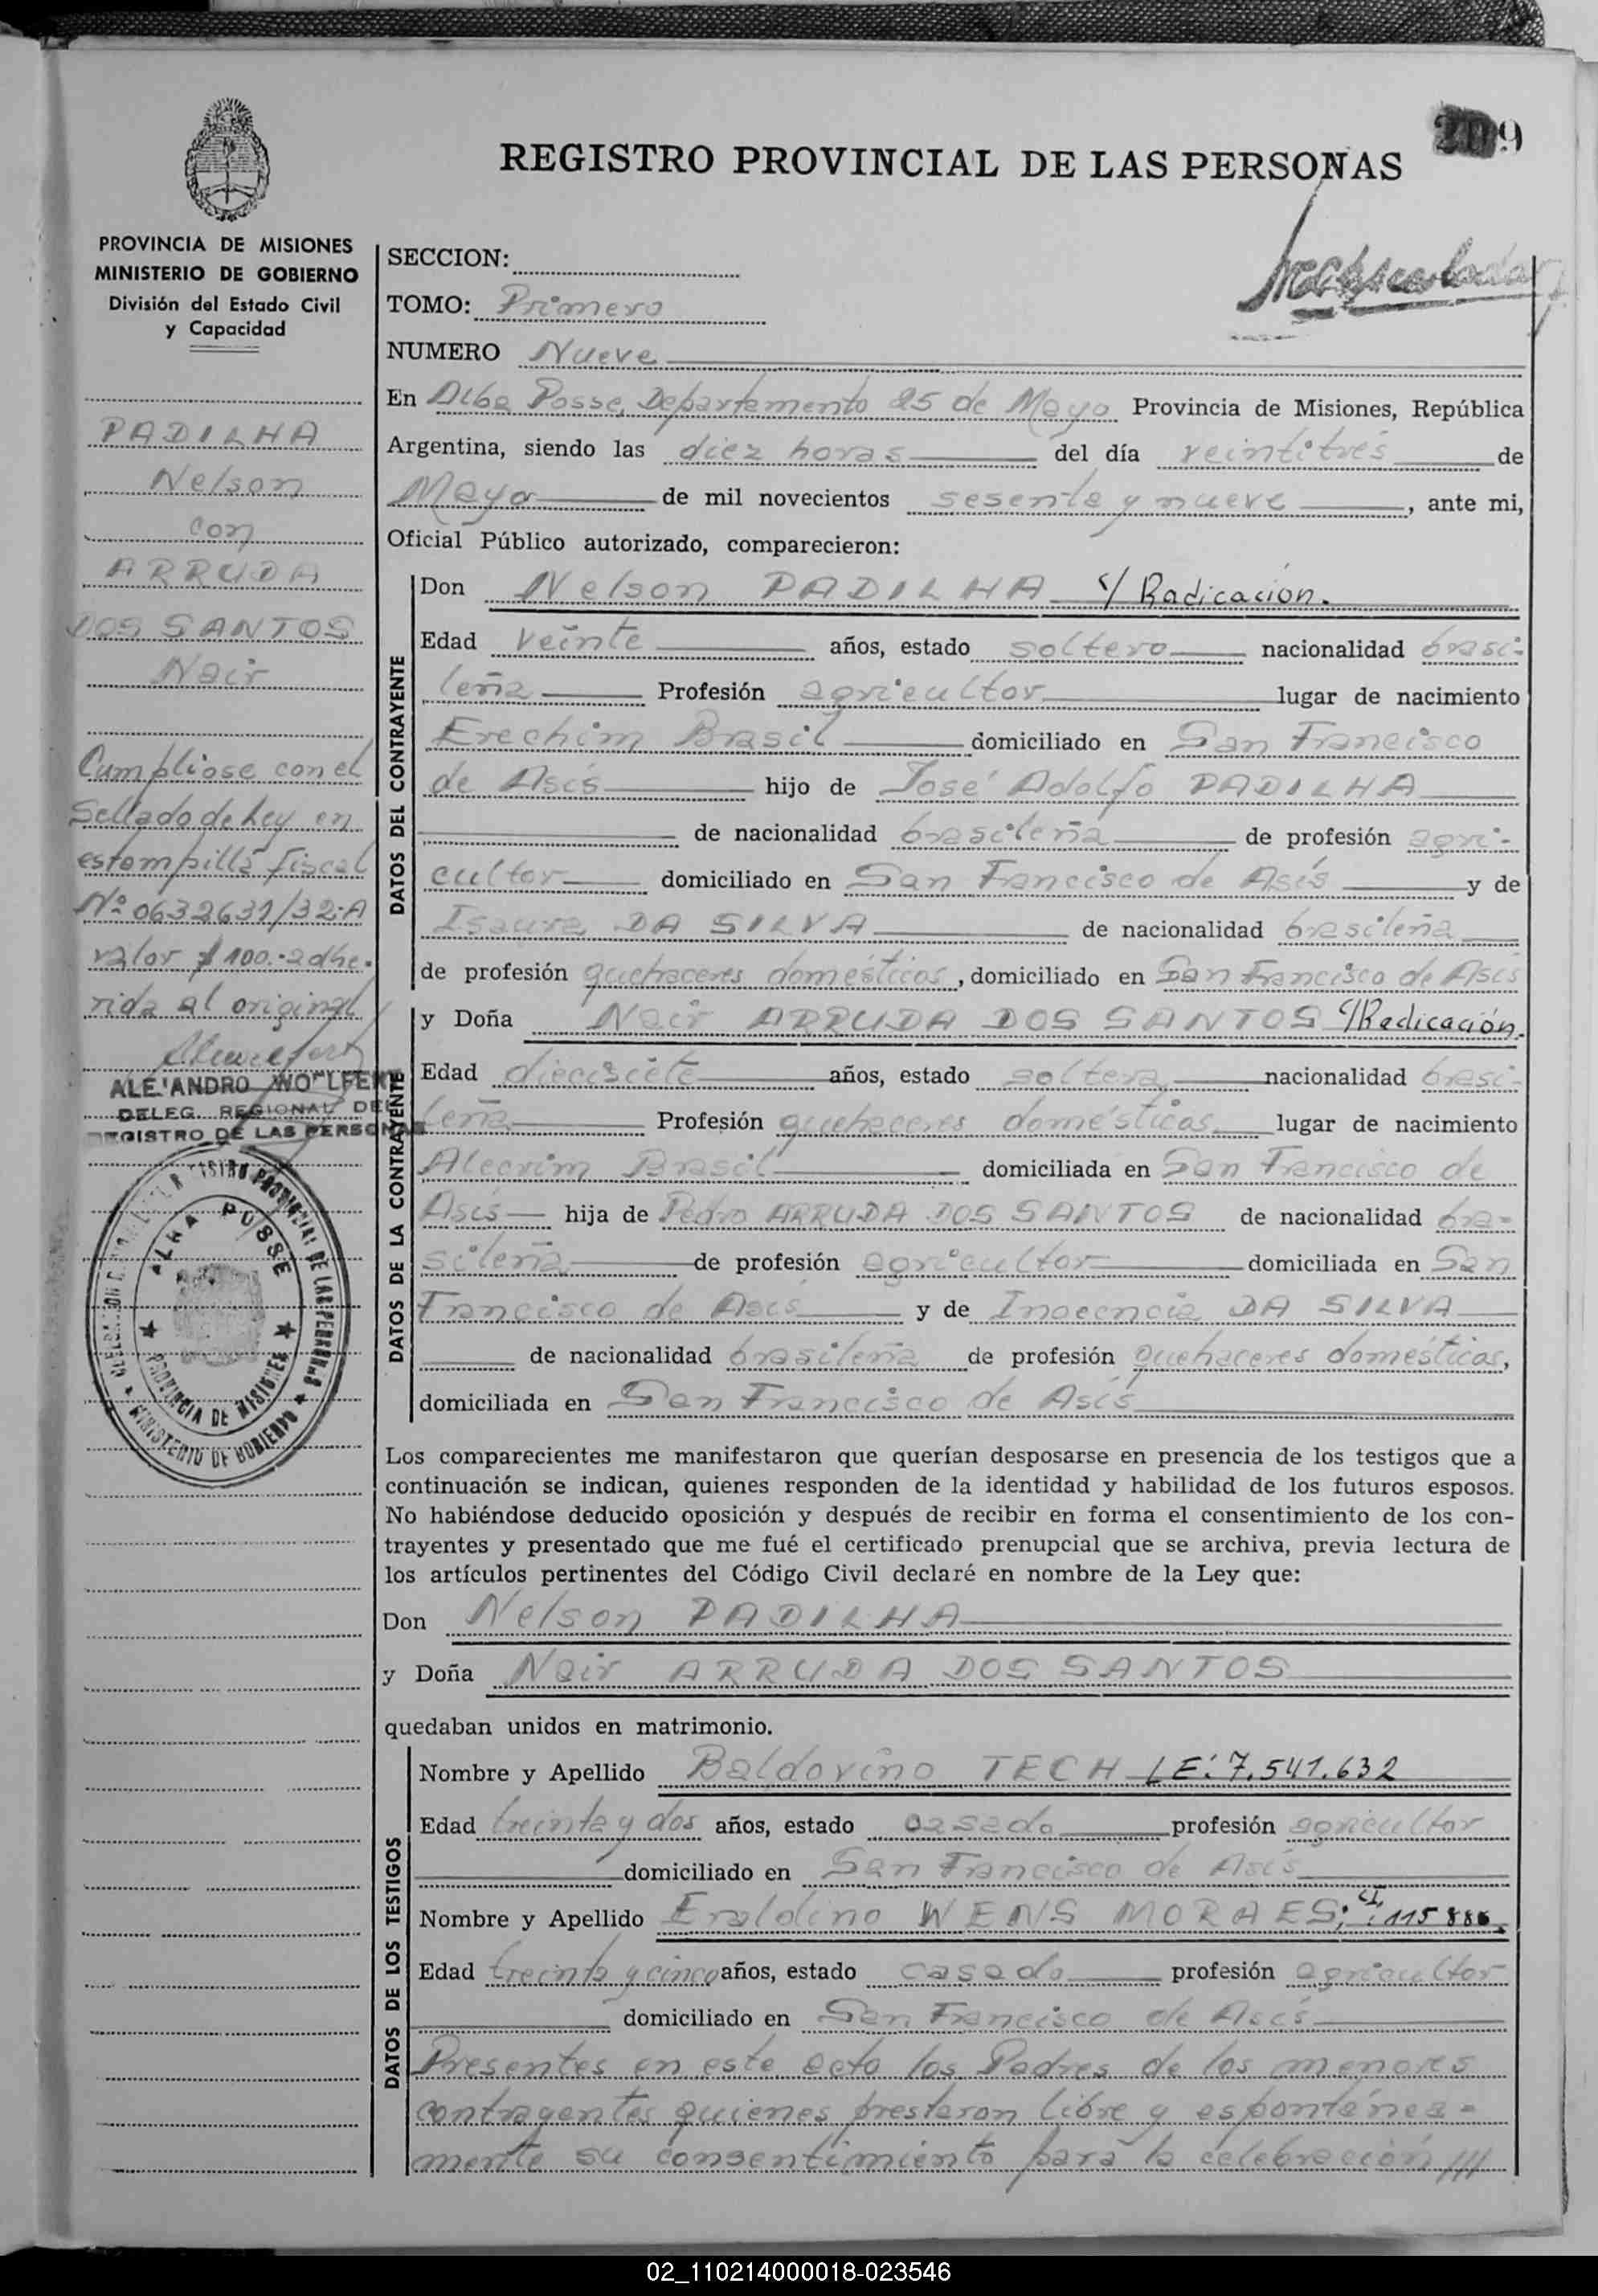 209
REGISTRO PROVINCIAL DE LAS PERSONAS
PROVINCIA DE MISIONES
MINISTERIO DE GOBIERNO
División del Estado Civil
y Capacidad
PADILHA
Nelson
con
ARRUDA
DOS SANTOS
Nair
Cumpliose con el
Sellado de Ley en
estampilla fiscal
Nº 0632631/32-A
valor $ 100.- adhe-
rida al original
ALEJANDRO WOLFERT
DELEG. REGIONAL DEL
REGISTRO DE LAS PERSONAS
REGISTRO PROVINCIAL DE LAS PERSONAS
ALBA POSSE
PROVINCIA DE MISIONES
MINISTERIO DE GOBIERNO
SECCION:
TOMO: Primero
NUMERO Nueve
En Alba Posse, Departamento 25 de Mayo Provincia de Misiones, República
Argentina, siendo las diez horas del día veintitrés de
Mayo de mil novecientos sesenta y nueve, ante mi,
Oficial Público autorizado, comparecieron:
DATOS DEL CONTRAYENTE
Don Nelson PADILHA c/ Radicación.
Edad veinte años, estado soltero nacionalidad brasi-
leña Profesión agricultor lugar de nacimiento
Erechim Brasil domiciliado en San Francisco
de Asís hijo de José Adolfo PADILHA
de nacionalidad brasileña de profesión agri-
cultor domiciliado en San Francisco de Asís y de
Isaura DA SILVA de nacionalidad brasileña
de profesión quehaceres domésticos, domiciliado en San Francisco de Asís
DATOS DE LA CONTRAYENTE
y Doña Nair ARRUDA DOS SANTOS c/Radicación.
Edad diecisiete años, estado soltera nacionalidad brasi-
leña Profesión quehaceres domésticos lugar de nacimiento
Alecrim Brasil domiciliada en San Francisco de
Asís hija de Pedro ARRUDA DOS SANTOS de nacionalidad bra-
sileña de profesión agricultor domiciliada en San
Francisco de Asís y de Inocencia DA SILVA
de nacionalidad brasileña de profesión quehaceres domésticos,
domiciliada en San Francisco de Asís
Los comparecientes me manifestaron que querían desposarse en presencia de los testigos que a
continuación se indican, quienes responden de la identidad y habilidad de los futuros esposos.
No habiéndose deducido oposición y después de recibir en forma el consentimiento de los con-
trayentes y presentado que me fué el certificado prenupcial que se archiva, previa lectura de
los artículos pertinentes del Código Civil declaré en nombre de la Ley que:
Don Nelson PADILHA
y Doña Nair ARRUDA DOS SANTOS
quedaban unidos en matrimonio.
DATOS DE LOS TESTIGOS
Nombre y Apellido Baldovino TECH LE: 7.541.632
Edad treinta y dos años, estado casado profesión agricultor
domiciliado en San Francisco de Asís
Nombre y Apellido Eraldino WENS MORAES; CI: 115886
Edad treinta y cinco años, estado casado profesión agricultor
domiciliado en San Francisco de Asís
Presentes en este acto los Padres de los menores
contrayentes quienes prestaron libre y espontánea-
mente su consentimiento para la celebración ///
02_110214000018-023546